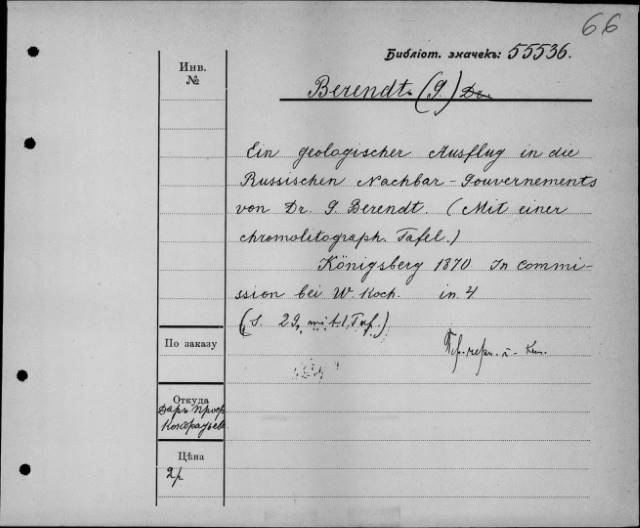 66
Библіот. значекъ: 55536.
Инв.
№
Berendt. (G) Dr.
Ein geologischer Ausflug in die
Russischen Nachbar-Gouvernements
von Dr. G. Berendt. (Mit einer
chromolitograph. Tafel.)
Königsberg 1870 In commi-
ssion bei W. Koch. in 4
(S. 29, mit 1, Taf.)
По заказу
Откуда
Даръ проф.
Цѣна
2р